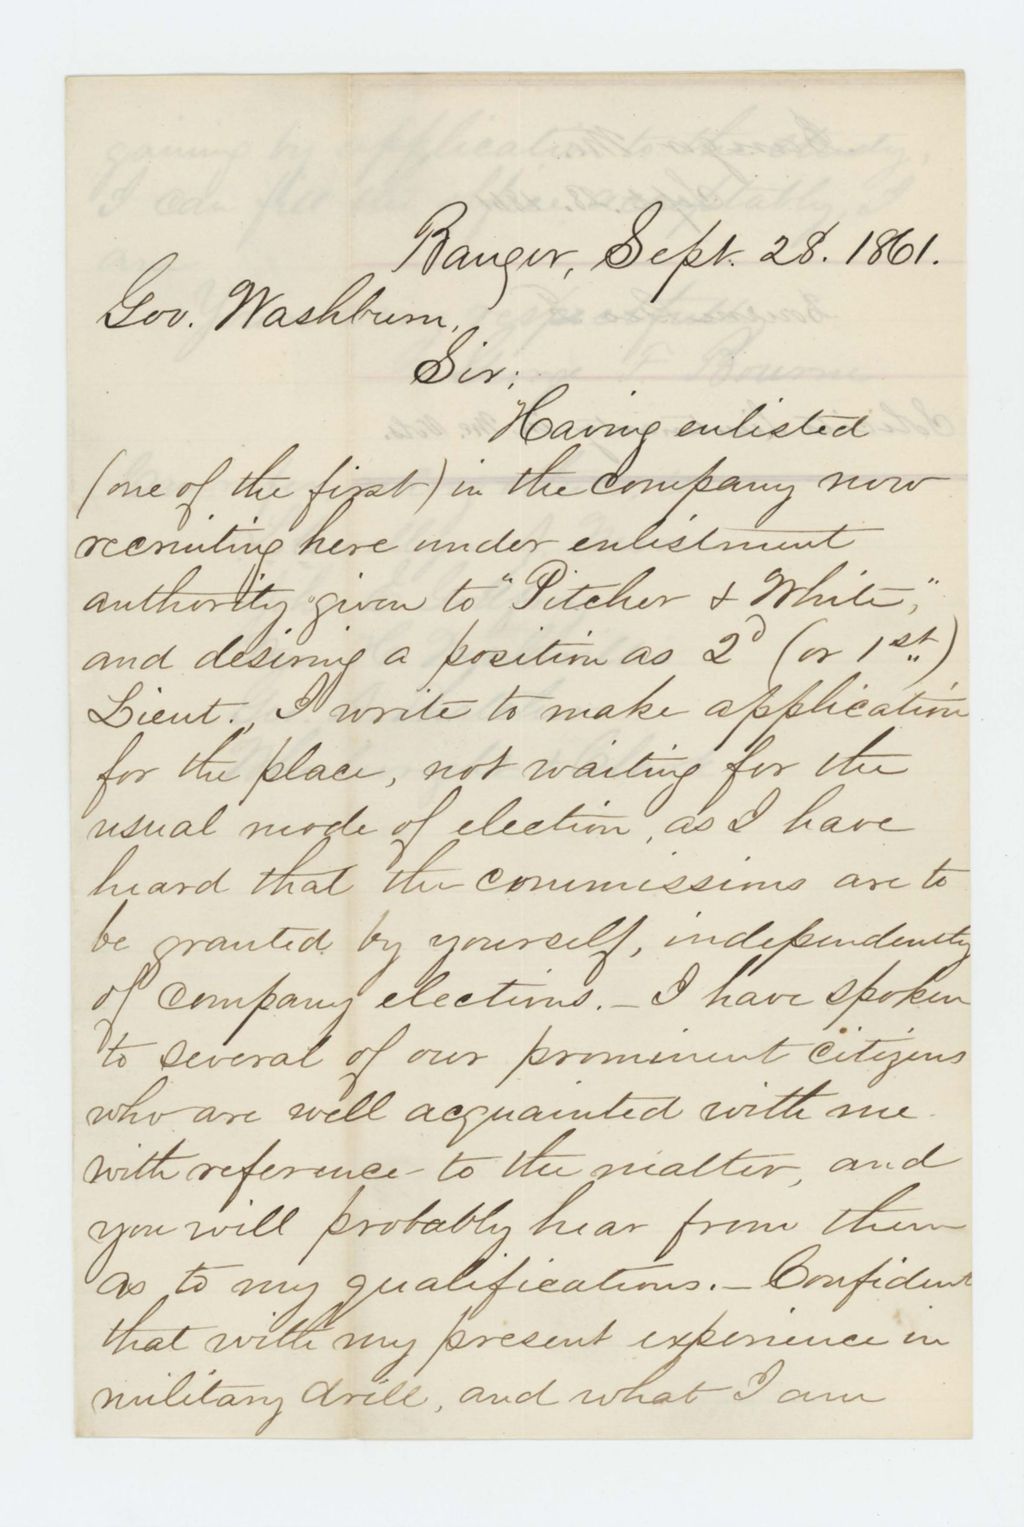 Bangor, Sept. 28. 1861.
Gov. Washburn,
Sir;
Having enlisted
(one of the first) in the company now
recruiting here under enlistment
authority given to "Pitcher & White,"
and desiring a position as 2d (or 1st)
Lieut., I write to make application
for the place, not waiting for the
usual mode of election, as I have
heard that the commissions are to
be granted by yourself, independently
of company elections. – I have spoken
to several of our prominent citizens
who are well acquainted with me
with reference to the matter, and
you will probably hear from them
as to my qualifications. – Confident
that with my present experience in
military drill, and what I am